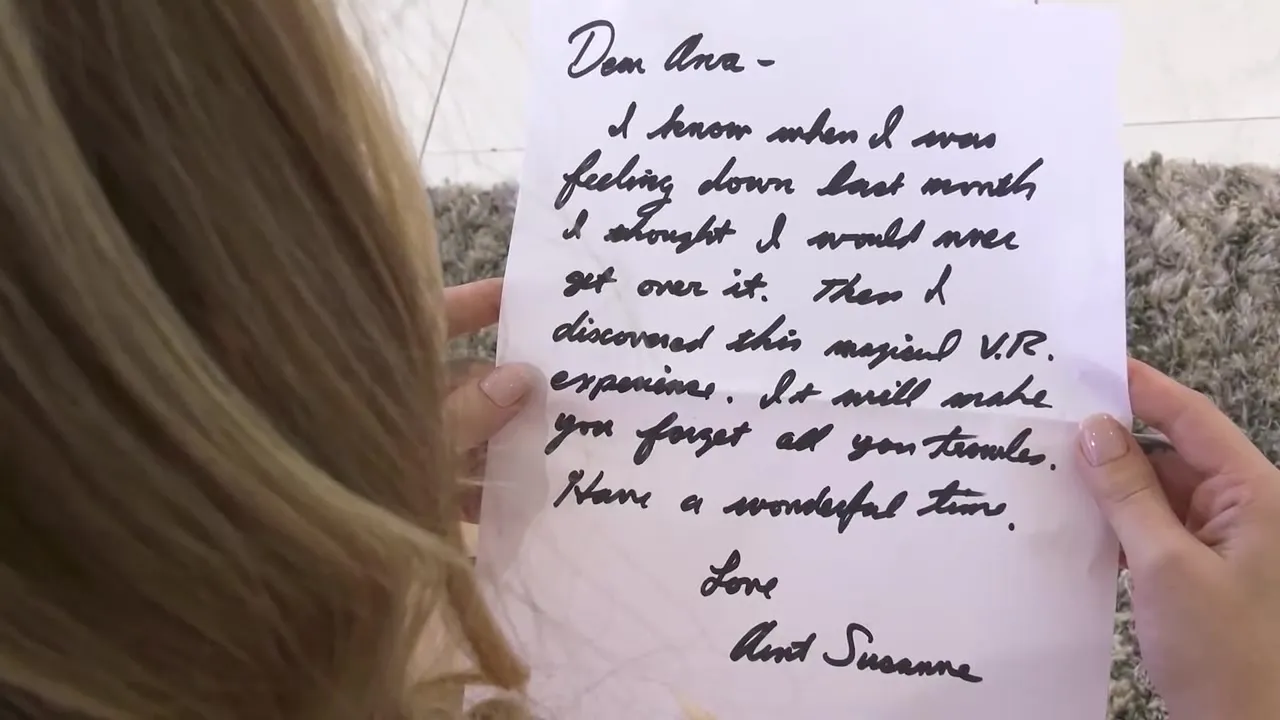 Dear Ava -
I know when I was
feeling down last month
I thought I would never
get over it. Then I
discovered this magical V.R.
experience. It will make
you forget all you troubles.
Have a wonderful time.
Love
Aunt Susanne